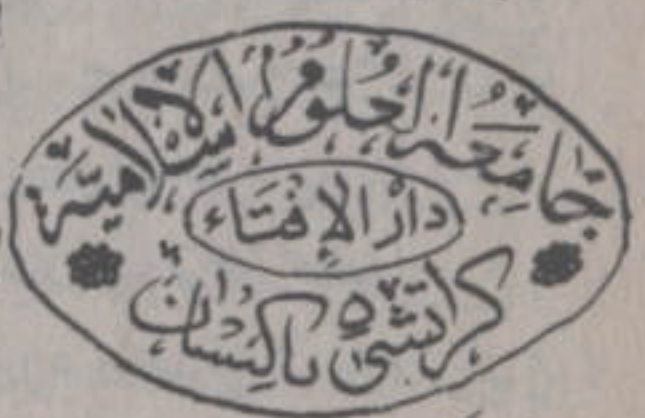 جَامِعَة العُلُوْم الإسْلَامِيَّة
دَارُ الإِفْتَاء
كراتشي ٥ باكِستان